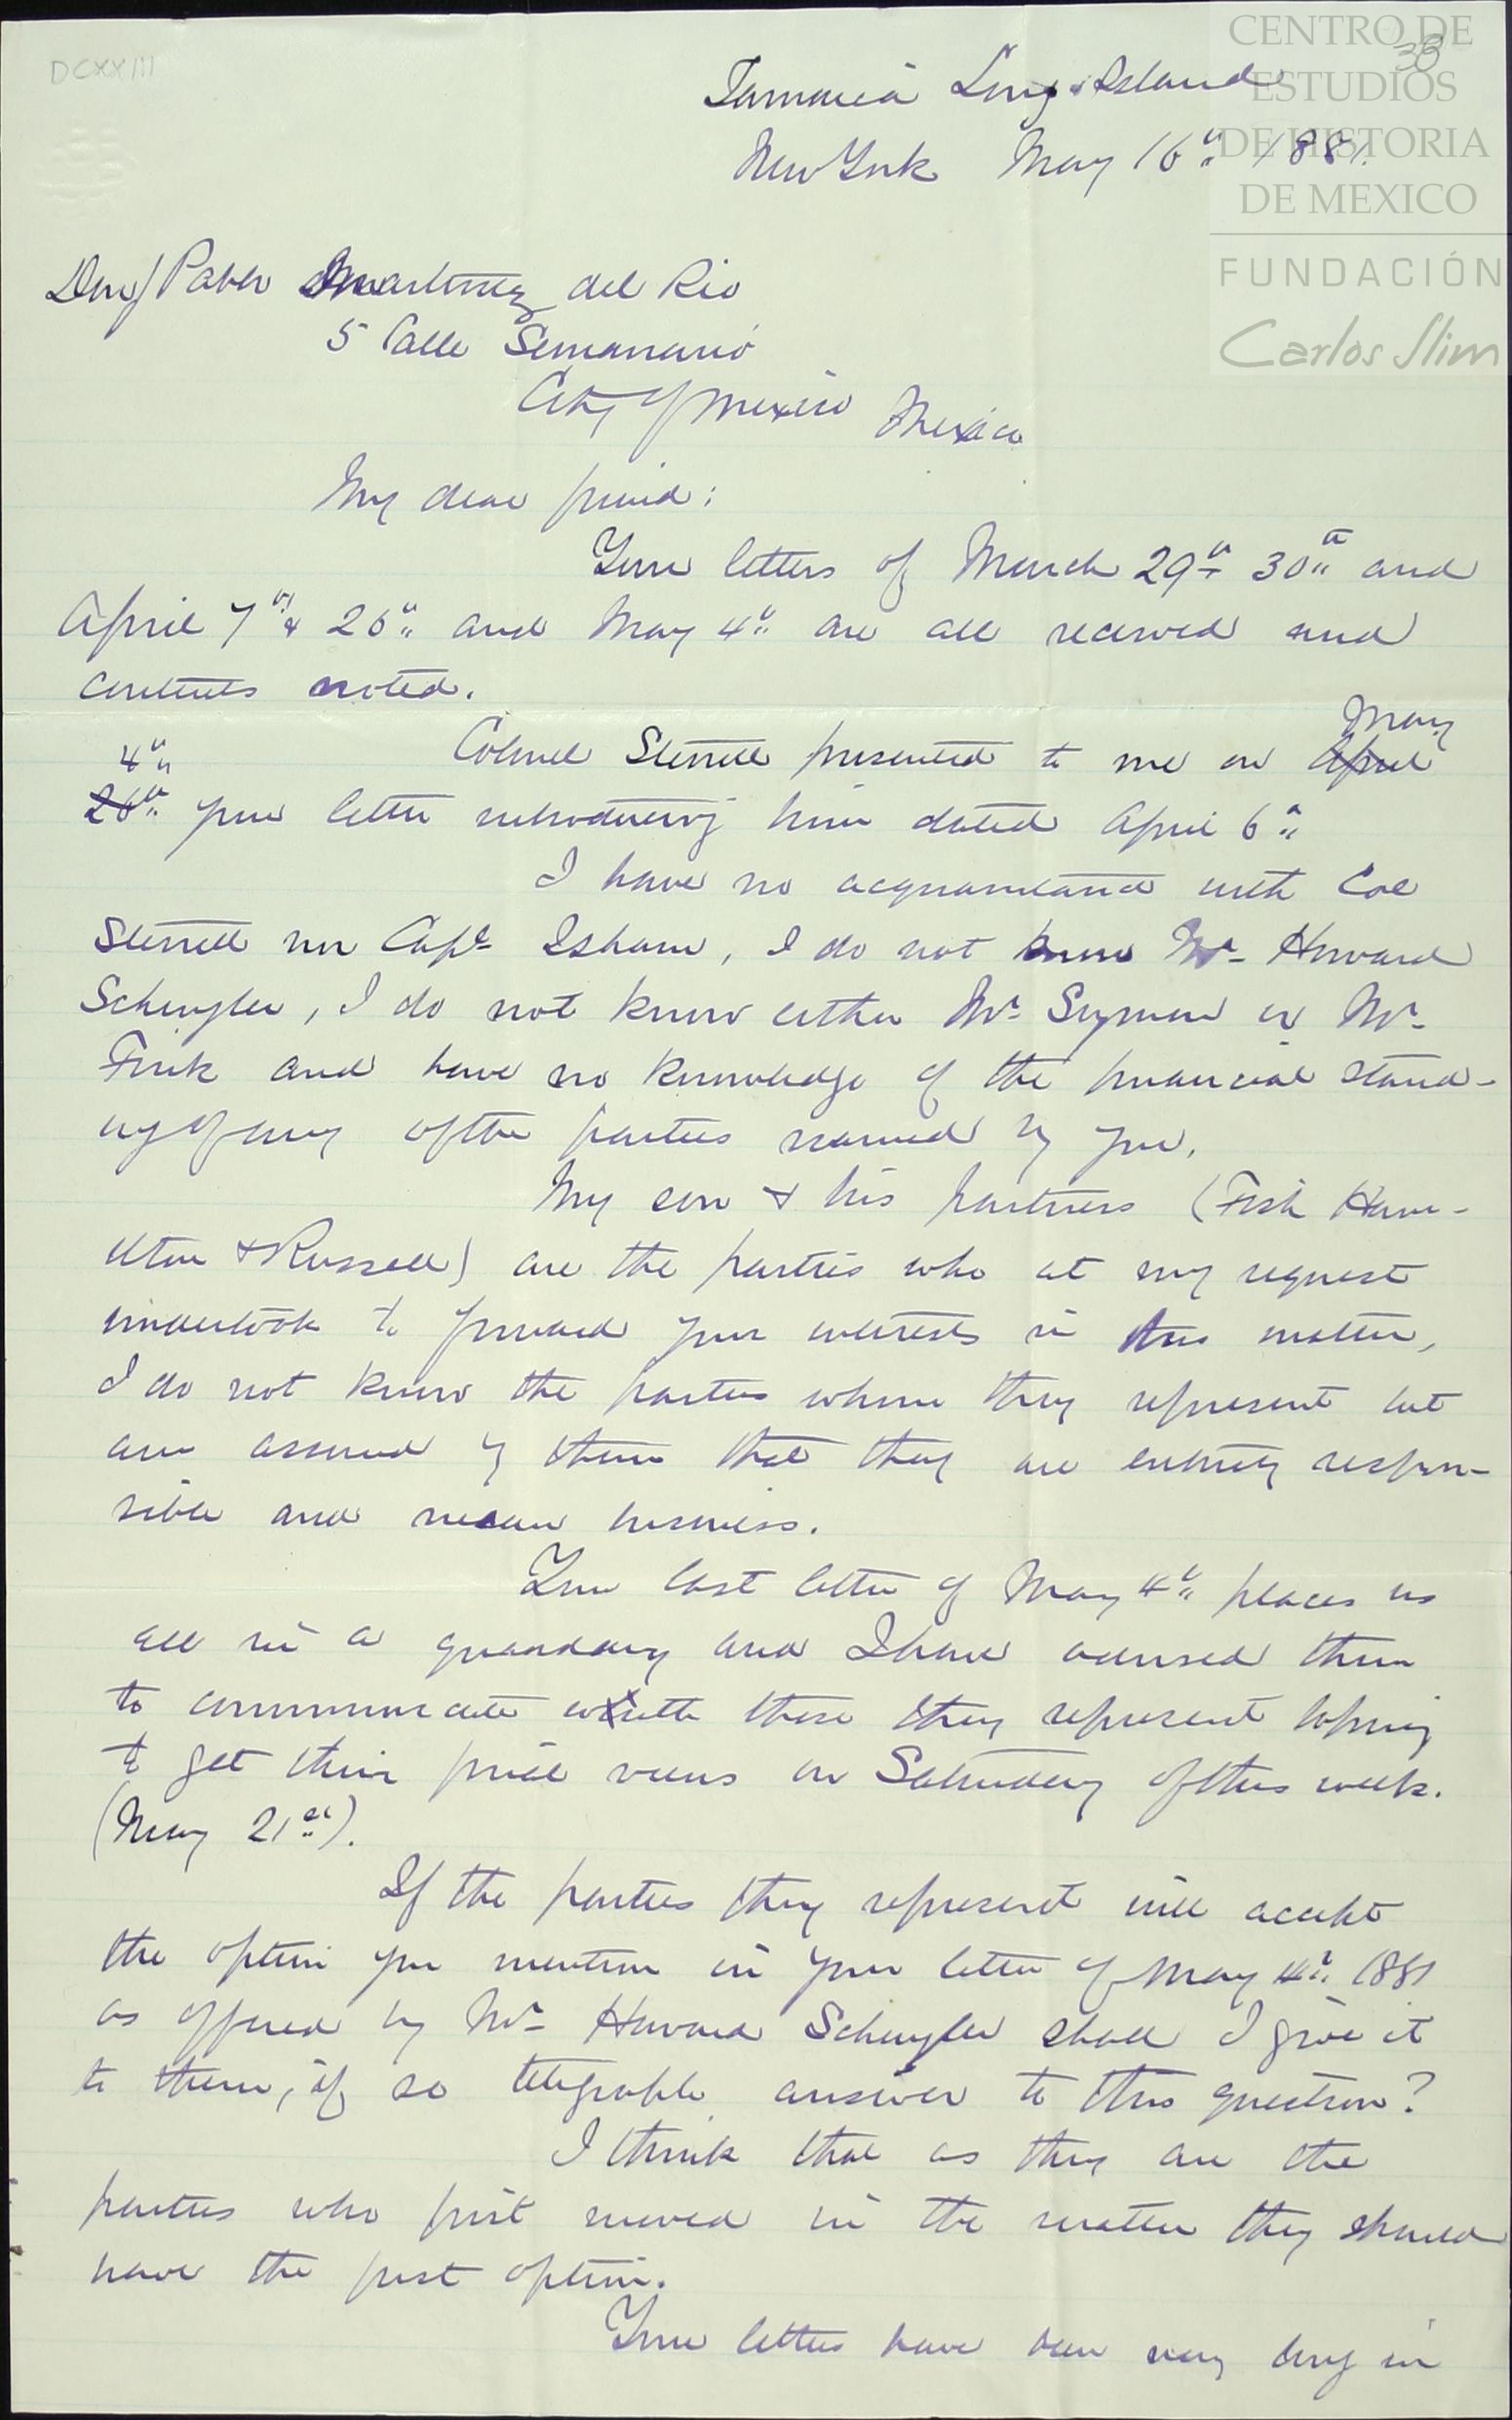 DCXXIII
38
CENTRO DE
ESTUDIOS
DE HISTORIA
DE MEXICO
FUNDACIÓN
Carlos Slim
Jamaica Long Island
New York May 16th 1881.
Don Pablo Martinez del Rio
5 Calle Semanario
City of Mexico Mexico
My dear friend:
Your letters of March 29th 30th and
April 7th & 26th and May 4th are all received and
contents noted.
Colonel Sterrett presented to me on April May
26th 4th your letter introducing him dated April 6th
I have no acquaintance with Col
Sterrett nor Capt Isham, I do not know Mr Howard
Schuyler, I do not know either Mr Seymour or Mr
Fink and have no knowledge of the financial stand-
ing of any of the parties named by you.
My son & his partners (Fish Ham-
ilton & Russell) are the parties who at my request
undertook to forward your interests in this matter,
I do not know the parties whom they represent but
am assured by them that they are entirely respon-
sible and mean business.
Your last letter of May 4th places us
all in a quandary and I have advised them
to communicate with those they represent hoping
to get their final views on Saturday of this week.
(May 21st).
If the parties they represent will accept
the option you mention in your letter of May 4th 1881
as offered by Mr Howard Schuyler shall I give it
to them, if so telegraph answer to this question?
I think that as they are the
parties who first moved in the matter they should
have the first option.
Your letters have been very long in